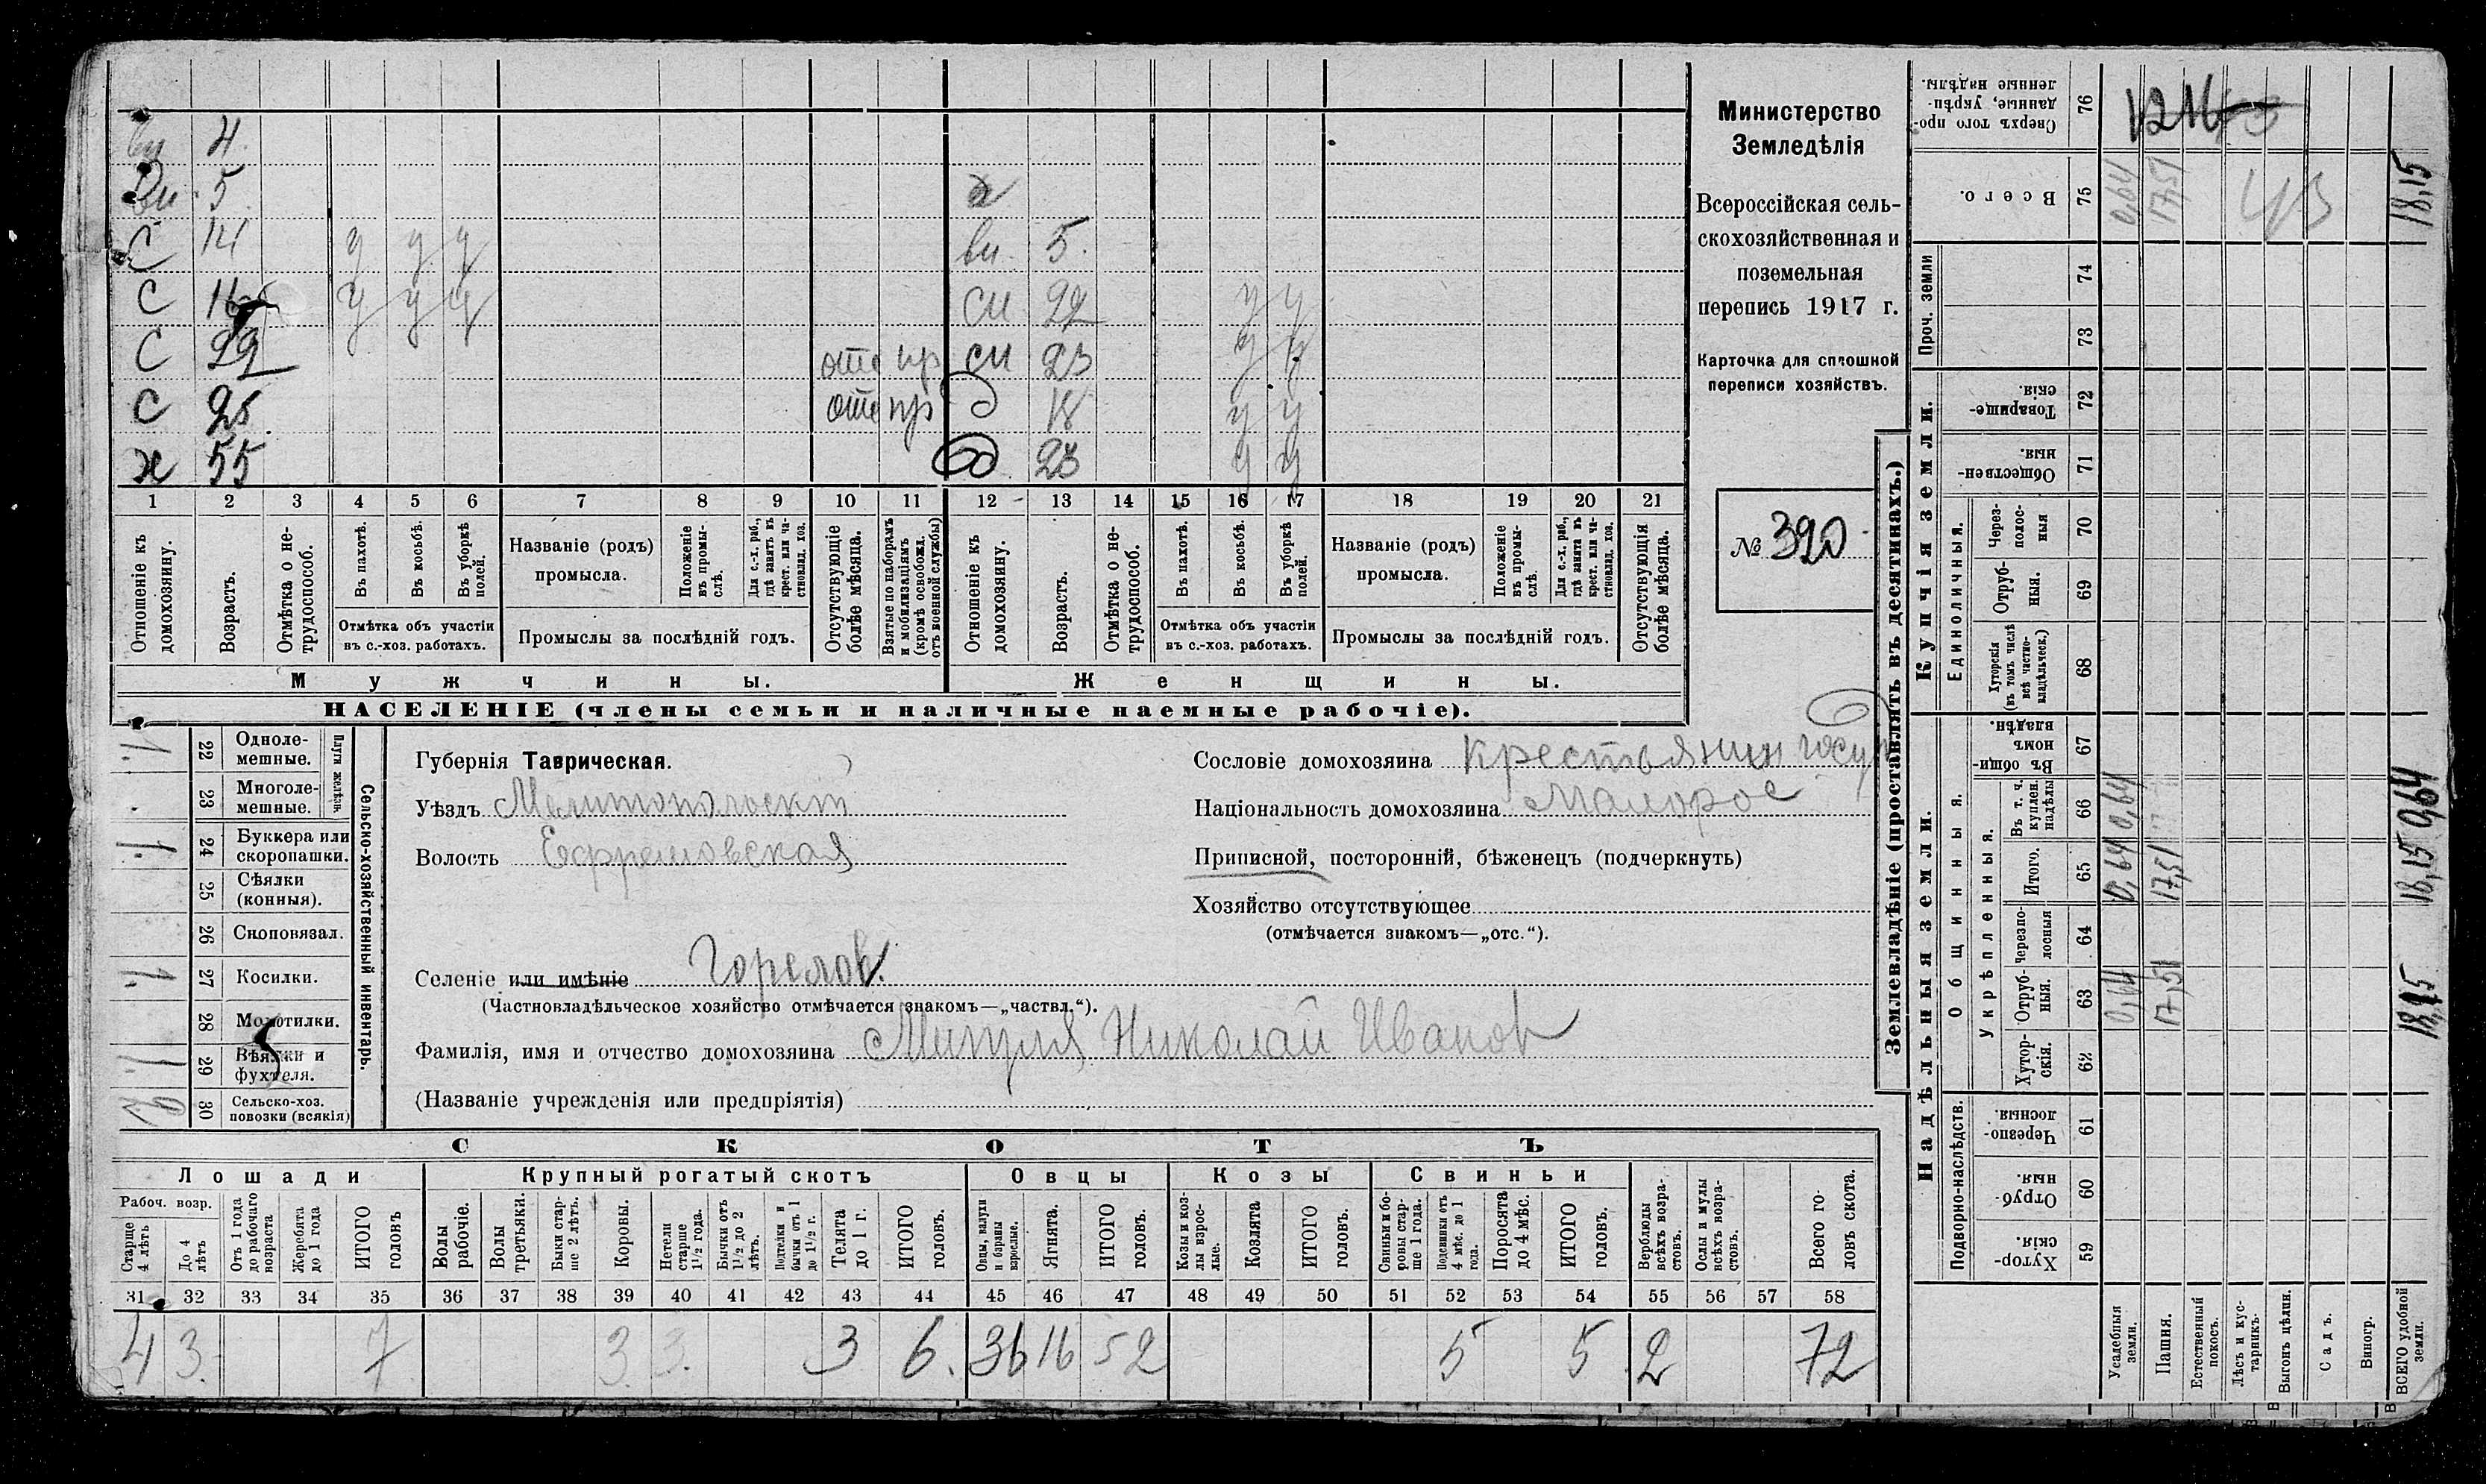 вн 4
Вн 5 х
С 14 у у у вн. 5.
С 16 у у у сн 22 у у
С 22 отс пр сн 23 у у
С 25 отс пр д 18 у у
х 55 д 23 у у
1 2 3 4 5 6 7 8 9 10 11 12 13 14 15 16 17 18 19 20 21
Отношеніе къ домохозяину.
Возрастъ.
Отмѣтка о не-трудоспособ.
Въ пахотѣ.
Въ косьбѣ.
Въ уборкѣ полей.
Отмѣтка объ участіи въ с.-хоз. работахъ.
Названіе (родъ) промысла.
Положеніе въ промы-слѣ.
Для с.-х. раб., гдѣ занятъ въ крест. или ча-стновлад. хоз.
Промыслы за послѣдній годъ.
Отсутствующіе болѣе мѣсяца.
Взятые по наборамъ и мобилизаціямъ (кромѣ освобожд. отъ военной службы)
Отношеніе къ домохозяину.
Возрастъ.
Отмѣтка о не-трудоспособ.
Въ пахотѣ.
Въ косьбѣ.
Въ уборкѣ полей.
Отмѣтка объ участіи въ с.-хоз. работахъ.
Названіе (родъ) промысла.
Положеніе въ промы-слѣ.
Для с.-х. раб., гдѣ занята въ крест. или ча-стновлад. хоз.
Промыслы за послѣдній годъ.
Отсутствующія болѣе мѣсяца.
Мужчины. Женщины.
НАСЕЛЕНІЕ (члены семьи и наличные наемные рабочіе).
Министерство
Земледѣлія
Всероссійская сель-
скохозяйственная и
поземельная
перепись 1917 г.
Карточка для сплошной
переписи хозяйствъ.
№ 390
Сельско-хозяйственный инвентарь.
Плуги желѣзн.
1. 22 Одноле-мешные.
23 Многоле-мешные.
1. 24 Буккера или скоропашки.
25 Сѣялки (конныя).
26 Сноповязал.
1. 27 Косилки.
28 Молотилки.
1. 29 Вѣялки и фухтеля.
30 Сельско-хоз. повозки (всякія)
Губернія Таврическая.
Уѣздъ Мелитопольскій
Волость Ефремовская
Селеніе или имѣніе Горелов.
(Частновладѣльческое хозяйство отмѣчается знакомъ—„частвл.“).
Фамилія, имя и отчество домохозяина Николай Иванов
(Названіе учрежденія или предпріятія)
Сословіе домохозяина крестьянин госуд
Національность домохозяина Малорос
Приписной, посторонній, бѣженецъ (подчеркнуть)
Хозяйство отсутствующее
(отмѣчается знакомъ—„отс.“).
СКОТЪ
Лошади Крупный рогатый скотъ Овцы Козы Свиньи
Рабоч. возр.
Старше 4 лѣтъ
До 4 лѣтъ
Отъ 1 года до рабочаго возраста
Жеребята до 1 года
ИТОГО головъ
Волы рабочіе.
Волы третьяки.
Быки стар-ше 2 лѣтъ.
Коровы.
Нетели старше 1½ года.
Бычки отъ 1½ до 2 лѣтъ.
Подтелки и бычки отъ 1 до 1½ г.
Телята до 1 г.
ИТОГО головъ.
Овцы, валухи и бараны взрослые.
Ягнята.
ИТОГО головъ.
Козы и коз-лы взрос-лые.
Козлята
ИТОГО головъ.
Свиньи и бо-ровы стар-ше 1 года.
Подсвинки отъ 4 мѣс. до 1 года.
Поросята до 4 мѣс.
ИТОГО головъ.
Верблюды всѣхъ возра-стовъ.
Ослы и мулы всѣхъ возра-стовъ.
Всего го-ловъ скота.
31 32 33 34 35 36 37 38 39 40 41 42 43 44 45 46 47 48 49 50 51 52 53 54 55 56 57 58
4 3 7 3 3. 3 6. 36 16 52 5 5 2 72
Землевладѣніе (проставлять въ десятинахъ.)
Купчія земли.
Надѣльныя земли.
Проч. земли
Единоличныя.
Общинныя.
Укрѣпленныя.
Подворно-наслѣдств.
Сверхъ того про-данные, укрѣп-ленные надѣлы. 76
Всего. 75 0,64 17,51 43 18,15
74
73
Товарище-скія 72
Обществен-ныя. 71
Через-полос-ныя 70
Отруб-ныя. 69
Хуторскія (въ томъ числѣ всѣ частно-владѣльческ.) 68
Въ общи-номъ владѣн. 67
Въ т. ч. куплен. надѣлы 66 0,64 0,64
Итого. 65 0,64 17,51 18,15
Черезпо-лосныя 64
Отруб-ныя. 63 0,64 17,51 18,15
Хутор-скія. 62
Черезпо-лосныя. 61
Отруб-ныя. 60
Хутор-скія. 59
Усадебныя земли.
Пашня.
Естественный покосъ.
Лѣсъ и кус-тарникъ.
Выгонъ цѣлин.
Садъ.
Виногр.
ВСЕГО удобной земли.